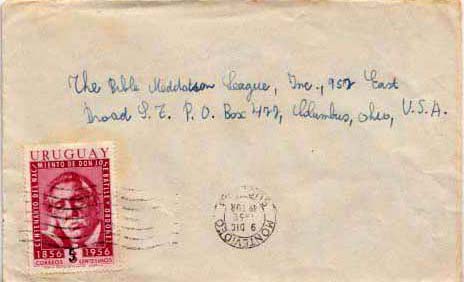 The Bible Meddatson League, Inc., 952 East
Broad S.T. P.O. Box 477, Columbus, Ohio, U.S.A.
URUGUAY
CENTENARIO DEL NACIMIENTO DE DON JOSE BATLLE Y ORDOÑEZ
1856 5 1956
CORREOS CENTESIMOS
MONTEVIDEO
9 DIC